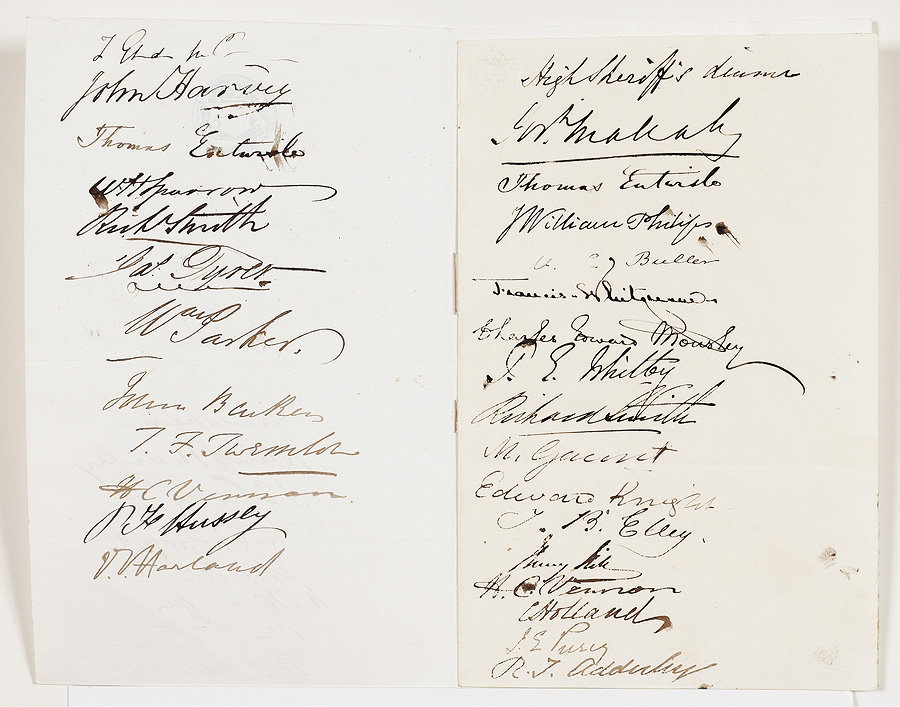 John Harvey
Thomas Entwisle
WH Sparrow
Richd Smith
Jas
Wm Parker.
T. F. Twemlow
H C Vernon
Hussey
Harland
High Sheriff's dinner
Thomas Entwisle
J William Philips
Buller
Francis Whitgreave
Charles Edward Mousley
J. E. Whitby
Richard Smith
M. Gaunt
Edward Knight
T. B. Elley.
Henry Hill
H. C. Vernon
C Holland
J. E. Purey
R. T. Adderley